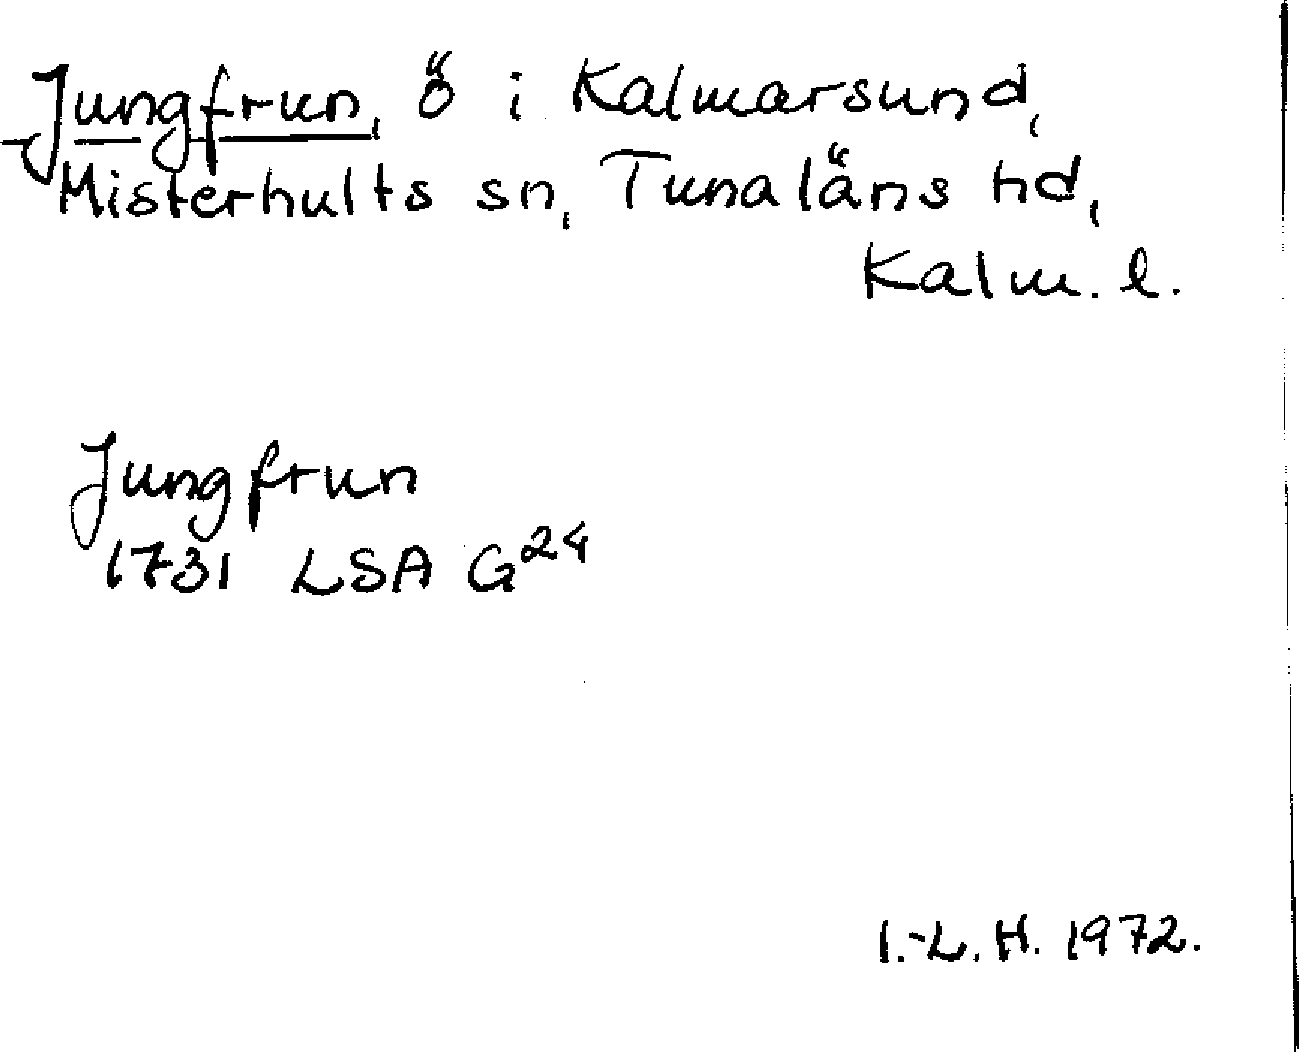 Jungfrun, ö i Kalmarsund,
Misterhults sn, Tunaläns hd,
Kalm. l.
Jungfrun
1731 LSA G²⁴
I.-L. H. 1972.